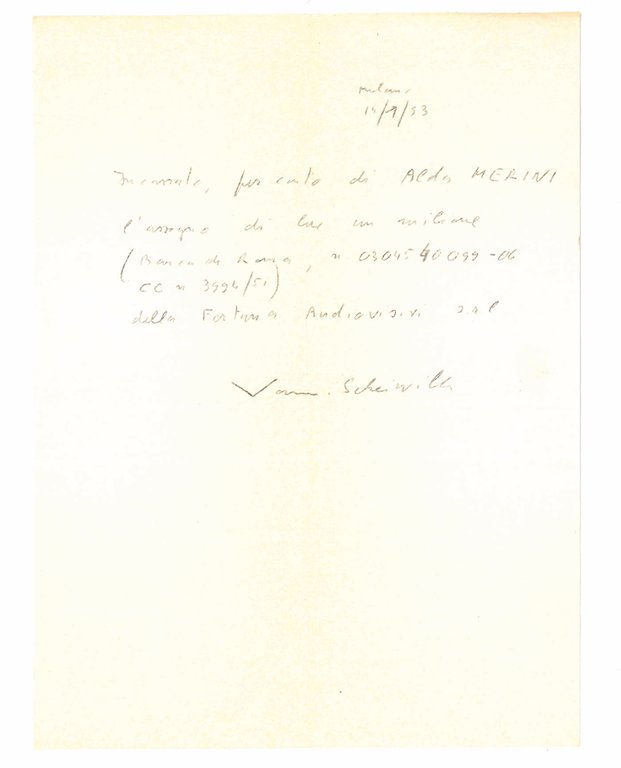 Milano
14/9/93
Incassato, per conto di Alda MERINI
l'assegno di lire un milione
(Banca di Roma, n. 0304540099-06
CC n 3994/51)
della Fortuna Audiovisivi srl
Vanni Scheiwiller